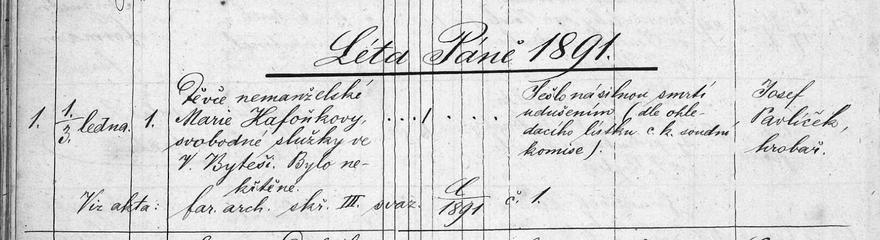 Léta Páně 1891.
1. 1./3. ledna. 1. Děvče nemanželské
Marie Hafoňkovy,
svobodné služky ve
V. Byteši. Bylo ne-
křtěné.
. . . / . . . .
Sešlo násilnou smrtí
udušením (dle ohle-
dacího lístku c. k. soudní
komise).
Josef
Pavlíček,
hrobař.
Viz akta: far. arch. skř. III. svaz. 1891 č. 1.